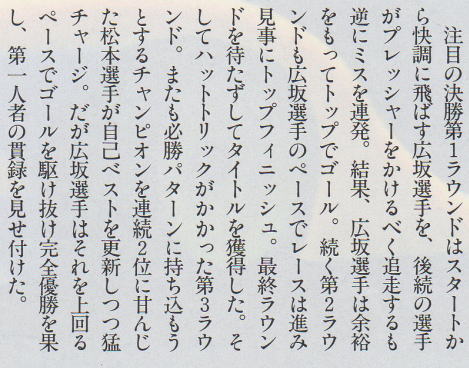 注目の決勝第1ラウンドはスタートか
ら快調に飛ばす広坂選手を、後続の選手
がプレッシャーをかけるべく追走するも
逆にミスを連発。結果、広坂選手は余裕
をもってトップでゴール。続く第2ラウ
ンドも広坂選手のペースでレースは進み
見事にトップフィニッシュ。最終ラウン
ドを待たずしてタイトルを獲得した。そ
してハットトリックがかかった第3ラウ
ンド。またも必勝パターンに持ち込もう
とするチャンピオンを連続2位に甘んじ
た松本選手が自己ベストを更新しつつ猛
チャージ。だが広坂選手はそれを上回る
ペースでゴールを駆け抜け完全優勝を果
し、第一人者の貫録を見せ付けた。